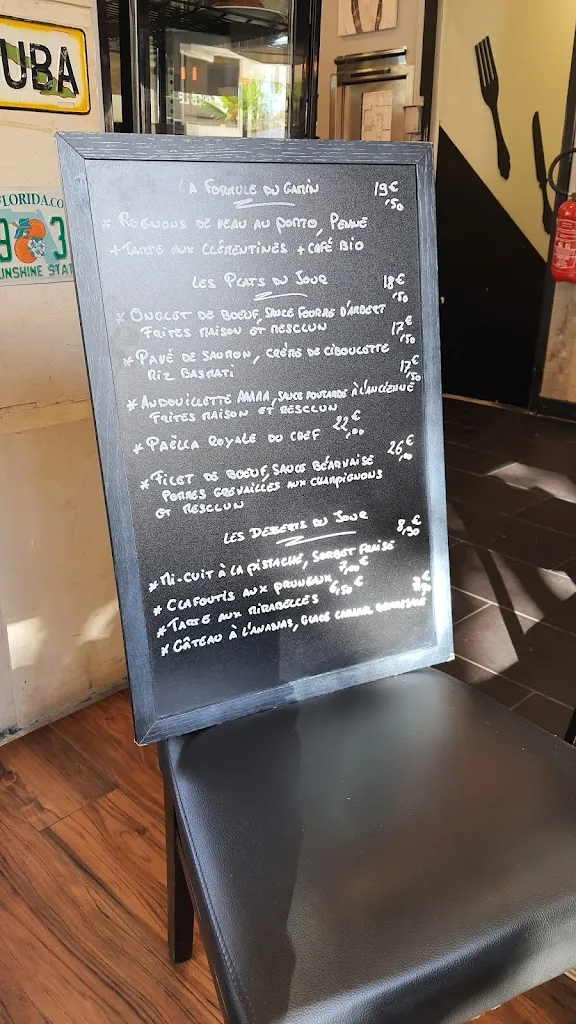 UBA
FLORIDA.CO
9 3
UNSHINE STAT
LA FORMULE DU GAMIN 19€,50
* ROGNONS DE VEAU AU PORTO, PENNE
+ TARTE AUX CLÉMENTINES + CAFÉ BIO
LES PLATS DU JOUR
* ONGLET DE BOEUF, SAUCE FOURME D'AMBERT 18€,50
FRITES MAISON ET MESCLUN
* PAVÉ DE SAUMON, CRÈME DE CIBOULETTE 17€,50
RIZ BASMATI
* ANDOUILLETTE AAAAA, SAUCE MOUTARDE À L'ANCIENNE 17€,50
FRITES MAISON ET MESCLUN
* PAËLLA ROYALE DU CHEF 22€,00
* FILET DE BOEUF, SAUCE BÉARNAISE 26€,00
POMMES GRENAILLES AUX CHAMPIGNONS
ET MESCLUN
LES DESSERTS DU JOUR
* MI-CUIT À LA PISTACHE, SORBET FRAISE 8€,90
* CLAFOUTIS AUX PRUNEAUX 7,00€
* TARTE AUX MIRABELLES 6,50€
* GÂTEAU À L'ANANAS, GLACE CARAMEL